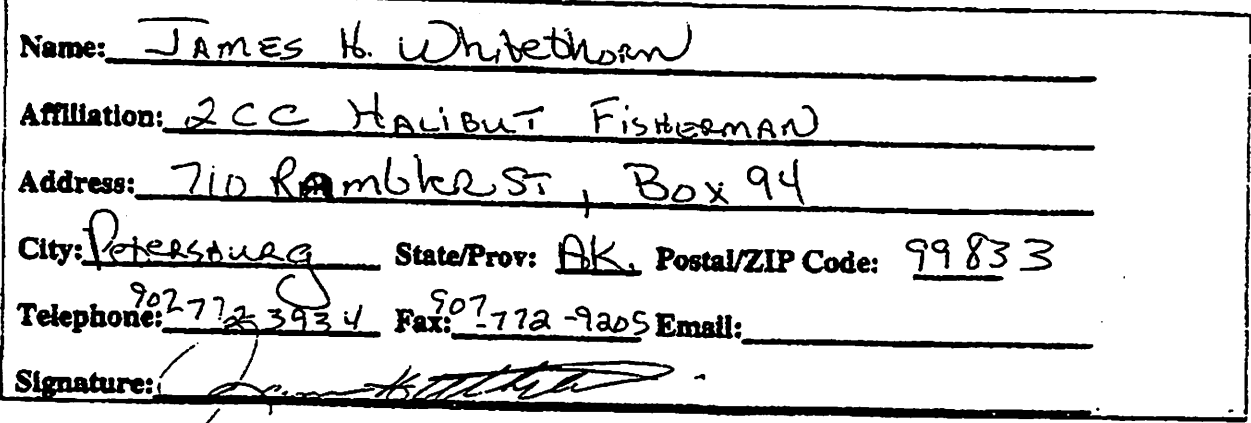 Name: JAMES H. Whitethorn
Affiliation: 2CC HALIBUT FISHERMAN
Address: 710 Rambler ST, Box 94
City: Petersburg State/Prov: AK. Postal/ZIP Code: 99833
Telephone: 907 772 3934 Fax: 907-772-9205 Email:
Signature: